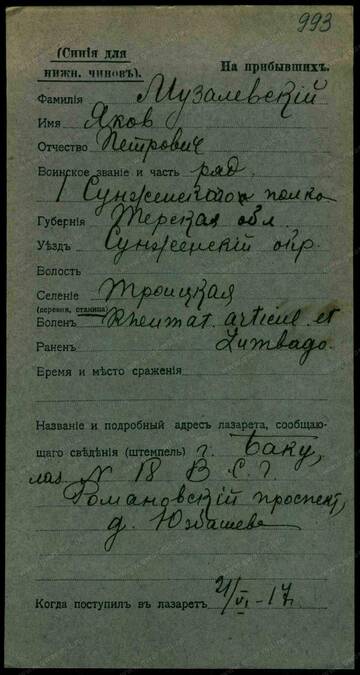 993
(Синія для
нижн. чиновъ).
На прибывшихъ.
Фамилія Музалевскій
Имя Яков
Отчество Петрович
Воинское званіе и часть ряд.
1 Сунженского полка
Губернія Терская обл.
Уѣздъ Сунженскій окр.
Волость
Селеніе Троицкая
(деревня, станица)
Боленъ Rheumat. articul et
Раненъ Lumbago.
Время и мѣсто сраженія
Названіе и подробный адресъ лазарета, сообщаю-
щаго свѣдѣнія (штемпель) г. Баку,
лаз. N 18 В. С. Г.
Романовскій проспект,
д. Юзбашева
Когда поступилъ въ лазаретъ 21/VI-17